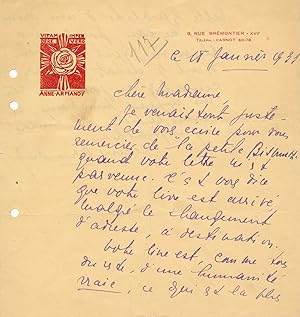 VITAM IMPE
DERE VERO
ANNE ARMANDY
9, RUE BRÉMONTIER - XVIIᵉ
TÉLÉPH. : CARNOT 60-78
117
ce 18 Janvier 1931
Chère Madame
Je venais tout juste-
ment de vous écrire pour vous
remercier de "la petite
quand votre lettre m'est
parvenue. C'est vous dire
que votre livre est arrivé,
malgré le changement
d'adresse, à destination.
Votre livre est, comme tous
du reste, d'une humanité
vraie, ce qui est la plus